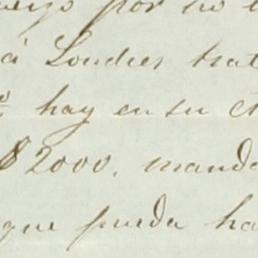 por no
á Londres trat
hay en su c
$2000. manda
que pueda ha